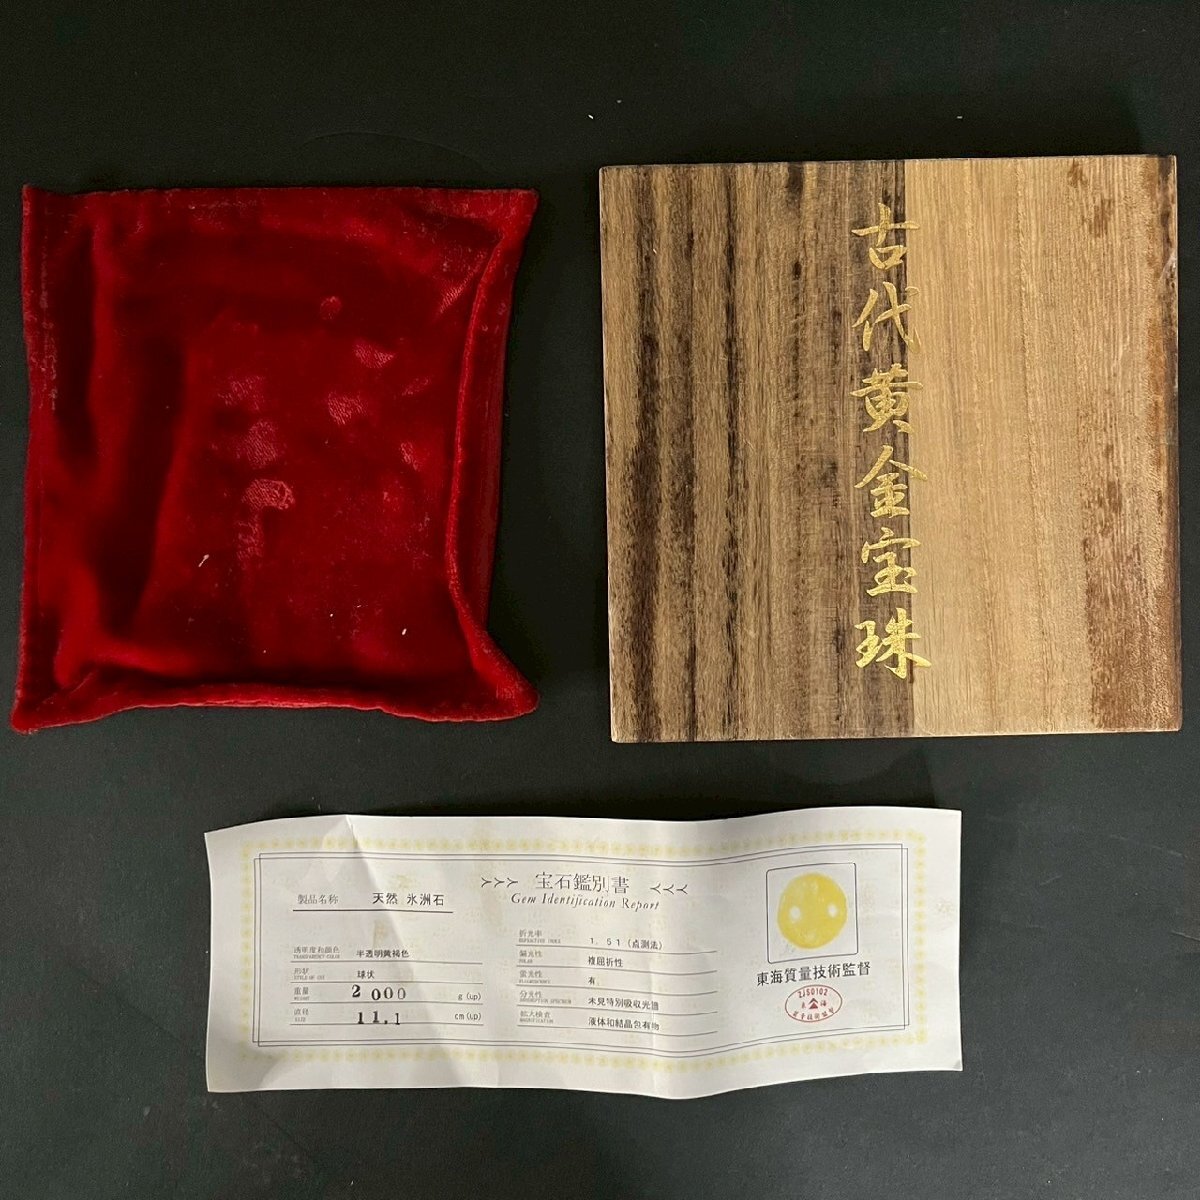 古代黄金宝珠
宝石鑑別書
Gem Identification Report
製品名称 天然 氷洲石
透明度和顔色 半透明黄褐色
TRANSPARENCY COLOR
形状 球状
STYLE OF CUT
重量 2000 g(up)
WEIGHT
直径 11.1 cm(up)
SIZE
折光率 1.51(点測法)
REFRACTIVE INDEX
偏光性 複屈折性
POLAR
蛍光性 有
FLUORESCENCE
分光性 未見特別吸収光譜
ABSORPTION SPECTRUM
拡大検査 液体和結晶包有物
MAGNIFICATION
東海質量技術監督
ZJS0102
東 海